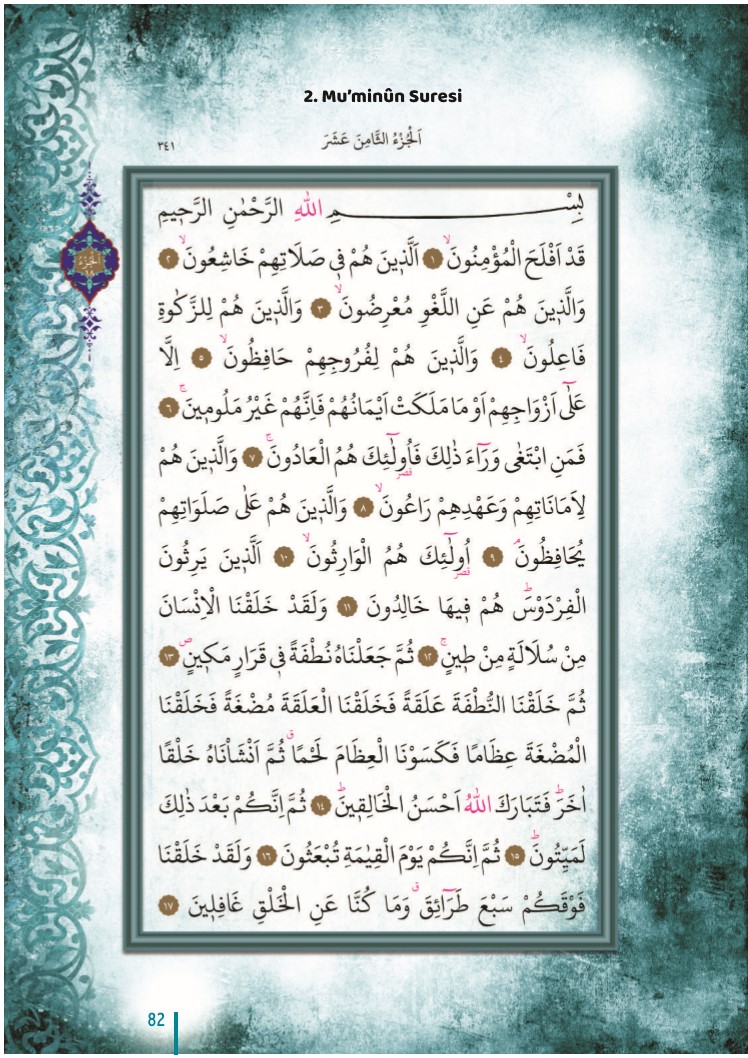 2. Mu’minûn Suresi
اَلْجُزْءُ الثَّامِنَ عَشَرَ ٣٤١
بِسْمِ اللّٰهِ الرَّحْمٰنِ الرَّح۪يمِ
قَدْ اَفْلَحَ الْمُؤْمِنُونَۙ ١ اَلَّذ۪ينَ هُمْ ف۪ي صَلَاتِهِمْ خَاشِعُونَۙ ٢
وَالَّذ۪ينَ هُمْ عَنِ اللَّغْوِ مُعْرِضُونَۙ ٣ وَالَّذ۪ينَ هُمْ لِلزَّكٰوةِ
فَاعِلُونَۙ ٤ وَالَّذ۪ينَ هُمْ لِفُرُوجِهِمْ حَافِظُونَۙ ٥ اِلَّا
عَلٰٓى اَزْوَاجِهِمْ اَوْ مَا مَلَكَتْ اَيْمَانُهُمْ فَاِنَّهُمْ غَيْرُ مَلُوم۪ينَۚ ٦
فَمَنِ ابْتَغٰى وَرَٓاءَ ذٰلِكَ فَاُو۬لٰٓئِكَ هُمُ الْعَادُونَۚ ٧ وَالَّذ۪ينَ هُمْ
قصر
لِاَمَانَاتِهِمْ وَعَهْدِهِمْ رَاعُونَۙ ٨ وَالَّذ۪ينَ هُمْ عَلٰى صَلَوَاتِهِمْ
يُحَافِظُونَۢ ٩ اُو۬لٰٓئِكَ هُمُ الْوَارِثُونَۙ ١٠ اَلَّذ۪ينَ يَرِثُونَ
قصر
الْفِرْدَوْسَۜ هُمْ ف۪يهَا خَالِدُونَ ١١ وَلَقَدْ خَلَقْنَا الْاِنْسَانَ
مِنْ سُلَالَةٍ مِنْ ط۪ينٍۚ ١٢ ثُمَّ جَعَلْنَاهُ نُطْفَةً ف۪ي قَرَارٍ مَك۪ينٍۖ ١٣
ثُمَّ خَلَقْنَا النُّطْفَةَ عَلَقَةً فَخَلَقْنَا الْعَلَقَةَ مُضْغَةً فَخَلَقْنَا
الْمُضْغَةَ عِظَامًا فَكَسَوْنَا الْعِظَامَ لَحْمًاۗ ثُمَّ اَنْشَأْنَاهُ خَلْقًا
اٰخَرَۜ فَتَبَارَكَ اللّٰهُ اَحْسَنُ الْخَالِق۪ينَۜ ١٤ ثُمَّ اِنَّكُمْ بَعْدَ ذٰلِكَ
لَمَيِّتُونَۜ ١٥ ثُمَّ اِنَّكُمْ يَوْمَ الْقِيٰمَةِ تُبْعَثُونَ ١٦ وَلَقَدْ خَلَقْنَا
فَوْقَكُمْ سَبْعَ طَرَٓائِقَۗ وَمَا كُنَّا عَنِ الْخَلْقِ غَافِل۪ينَ ١٧
82